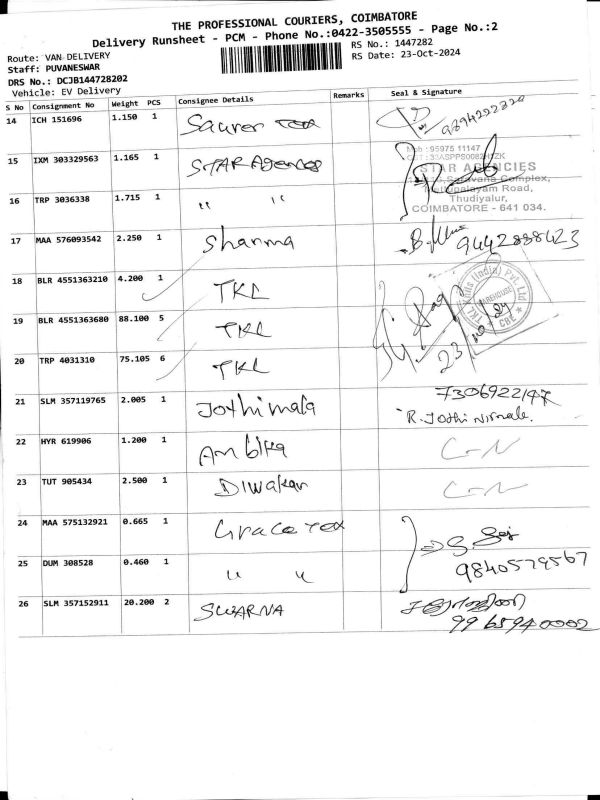 THE PROFESSIONAL COURIERS, COIMBATORE
Delivery Runsheet - PCM - Phone No.:0422-3505555 - Page No.:2
Route: VAN DELIVERY
RS No.: 1447282
Staff: PUVANESWAR
RS Date: 23-Oct-2024
DRS No.: DCJB144728202
Vehicle: EV Delivery
S No Consignment No Weight PCS Consignee Details Remarks Seal & Signature
14 ICH 151696 1.150 1 Saurer Tex 9894222820
15 IXM 303329563 1.165 1 STAR Agences
Mob : 95975 11147
STAR AGENCIES
Complex,
Mettupalayam Road,
Thudiyalur,
COIMBATORE - 641 034.
16 TRP 3036338 1.715 1 " "
17 MAA 576093542 2.250 1 Sharma 9442888423
18 BLR 4551363210 4.200 1 TKL
19 BLR 4551363680 88.100 5 TKL
TKL (India) Pvt Ltd
WAREHOUSE
CBE
20 TRP 4031310 75.105 6 TKL
21 SLM 357119765 2.005 1 Jothimala 7306922147
R. Jothi Nirmale.
22 HYR 619906 1.200 1 Ambika C-N
23 TUT 905434 2.500 1 Diwakar C-N
24 MAA 575132921 0.665 1 Grace Tex
25 DUM 308528 0.460 1 " " 9840579567
26 SLM 357152911 20.200 2 SWARNA
9965940002